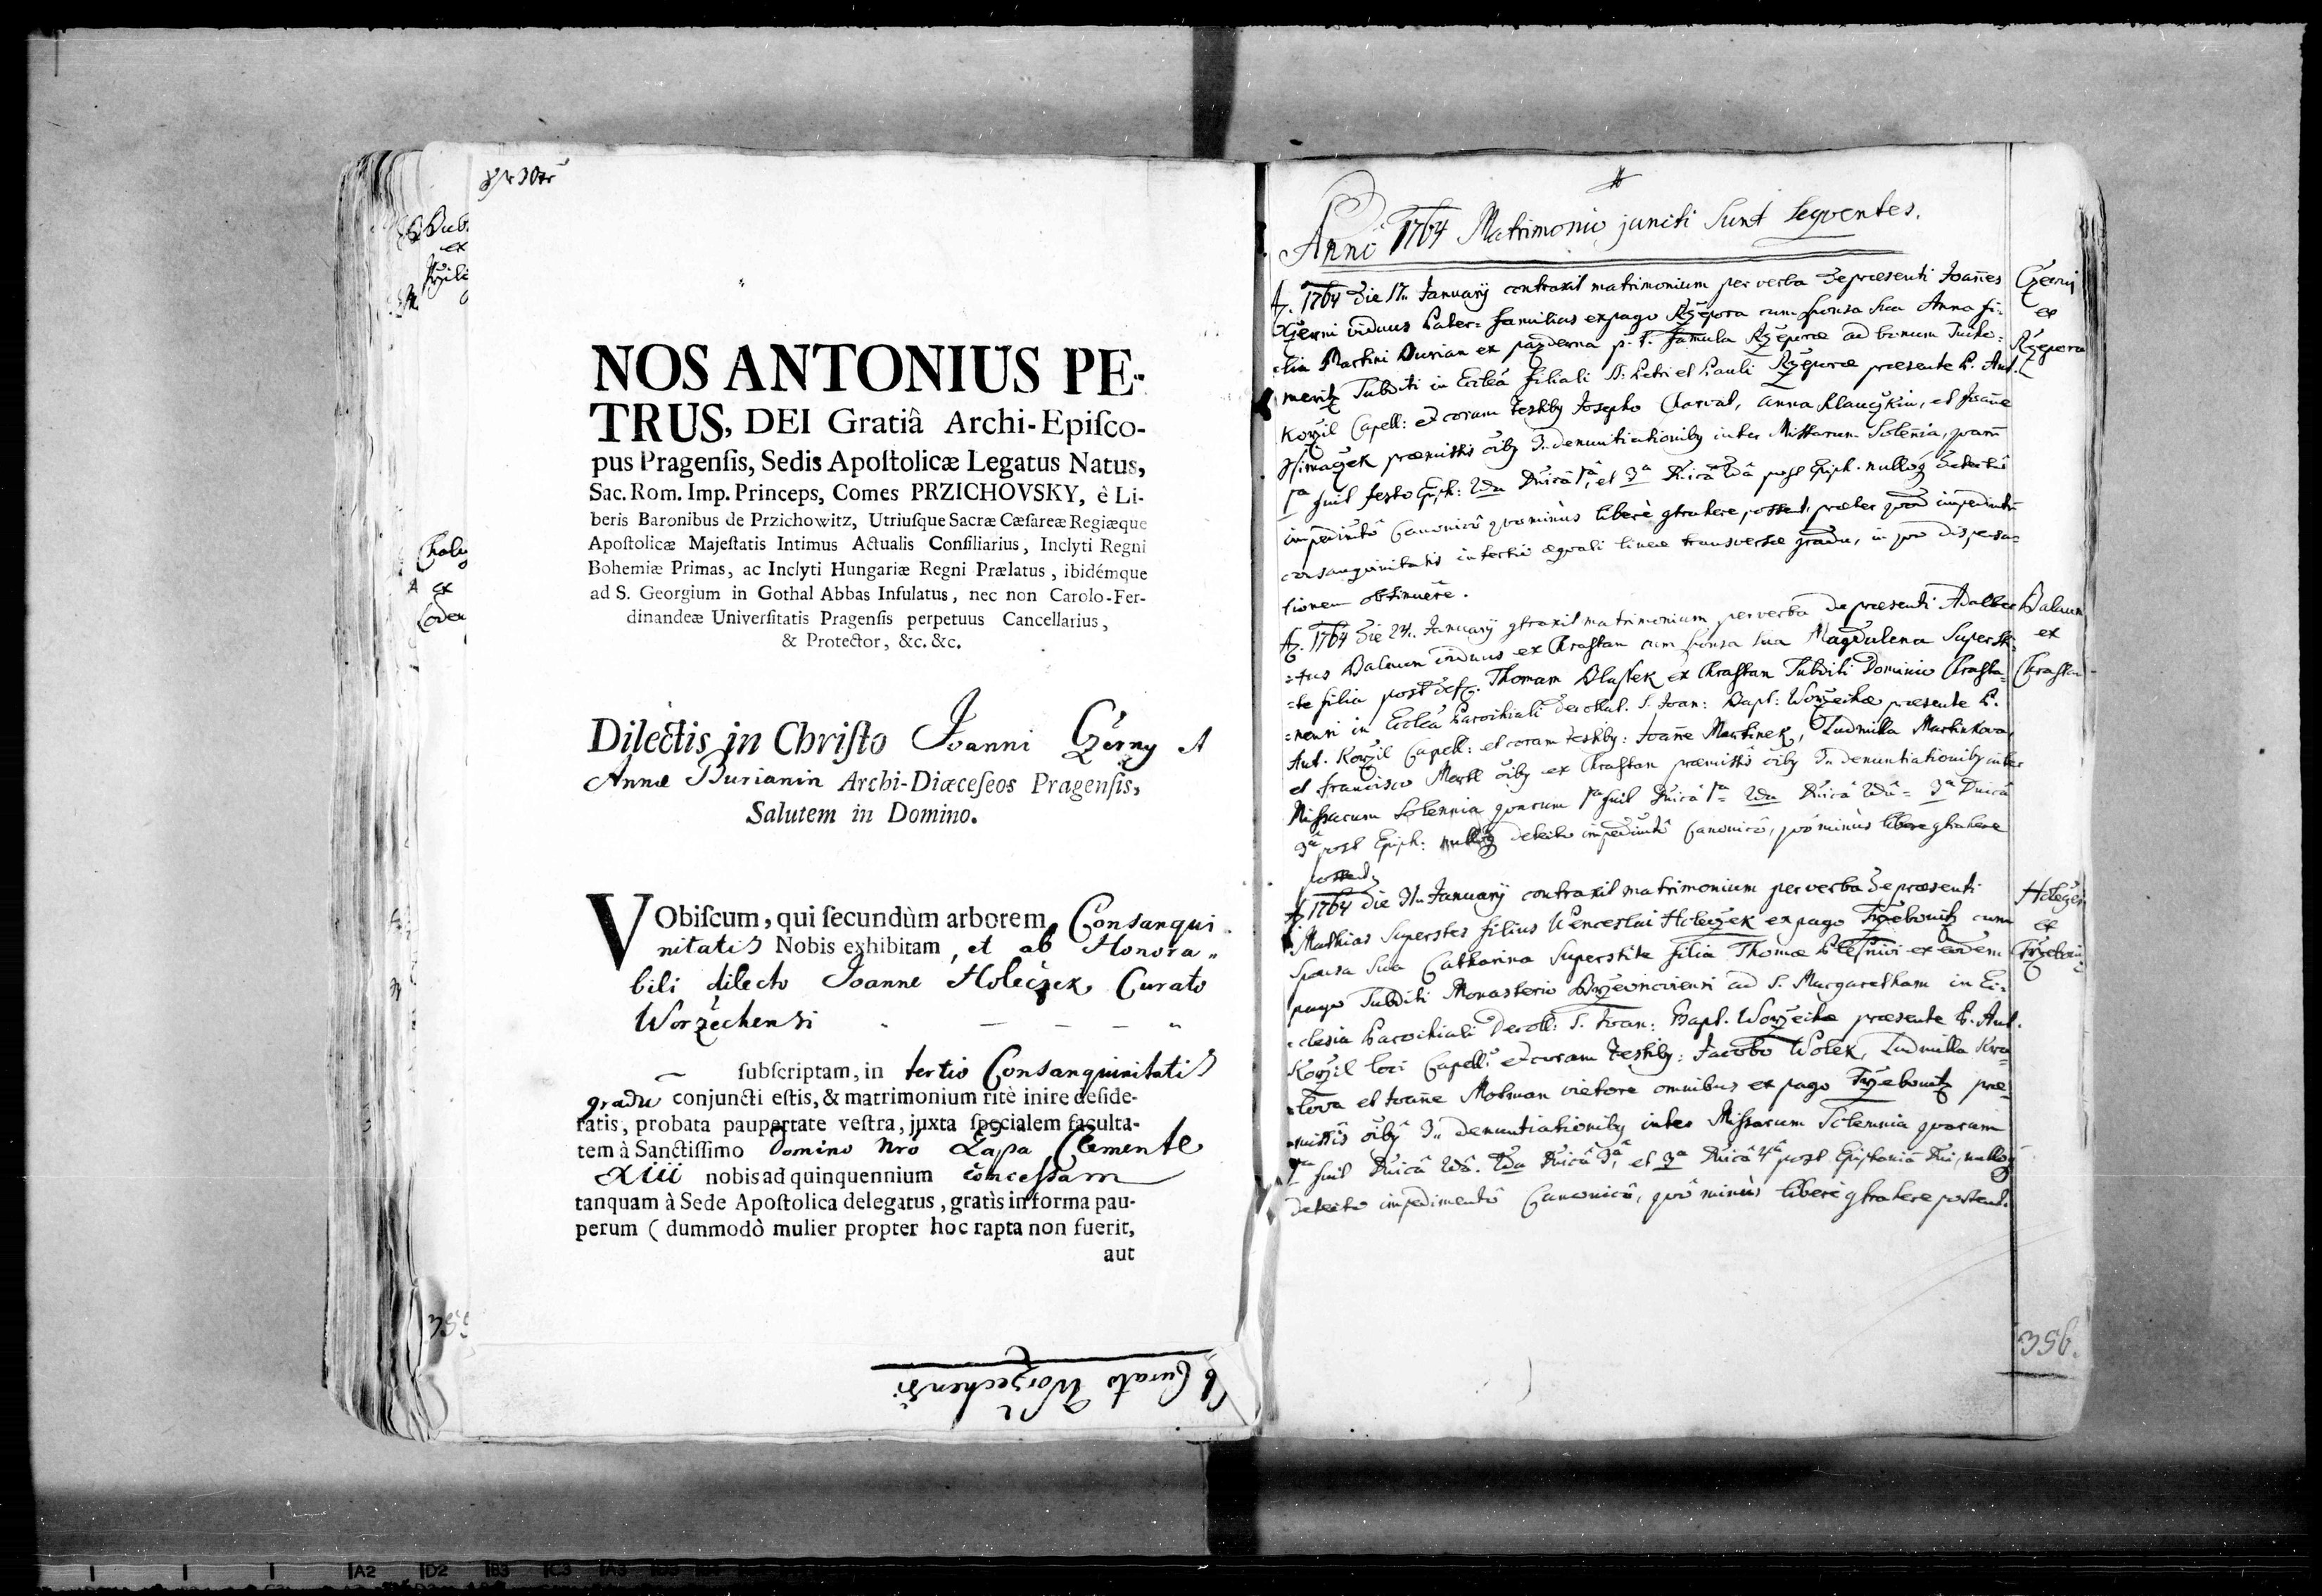 NOS ANTONIUS PE-
TRUS, DEI Gratiâ Archi-Epiſco-
pus Pragenſis, Sedis Apoſtolicæ Legatus Natus,
Sac. Rom. Imp. Princeps, Comes PRZICHOVSKY, è Li-
beris Baronibus de Przichowitz, Utriuſque Sacræ Cæſareæ Regiæque
Apoſtolicæ Majeſtatis Intimus Actualis Conſiliarius, Inclyti Regni
Bohemiæ Primas, ac Inclyti Hungariæ Regni Prælatus, ibidémque
ad S. Georgium in Gothal Abbas Infulatus, nec non Carolo-Fer-
dinandeæ Univerſitatis Pragenſis perpetuus Cancellarius,
& Protector, &c. &c.
Dilectis in Chriſto Joanni Czerny
Annæ Burianin Archi-Diœceſeos Pragenſis,
Salutem in Domino.
VObiſcum, qui ſecundùm arborem Consangui
nitatis Nobis exhibitam, et ab Honora„
bili dilecto Joanne Holeczek Curato
Worzechensi
ſubſcriptam, in tertio Consanquinitatis
gradu conjuncti eſtis, & matrimonium ritè inire deſide-
ratis, probata paupertate veſtra, juxta ſpecialem faculta-
tem à Sanctiſſimo Domino Nrô Papa Clemente
XIII nobis ad quinquennium concessam
tanquam à Sede Apoſtolica delegatus, gratìs in forma pau-
perum ( dummodò mulier propter hoc rapta non fuerit,
aut
Curato Worzechensi
Anno 1764 Matrimonio juncti Sunt Seqventes.
A. 1764 Die 17. Januarij contraxit matrimonium per verba de præsenti Joannes
Czerni viduus Pater-familias ex pago Rzepora cum sponsa sua Anna fi-
lia Martini Burian ex famula Rzeporæ ad
Subditi in Eccleâ filiali SS: Petri et Pauli Rzeporæ præsente P. Ant.
Korzil Capell: et coram testiby Josepho Charvat, Anna et Joanne
Ssimaczek præmissis oiby 3. denuntiationiby inter Missarum Solenia, quarū
1ª fuit festo Epiph: 2da Dnicâ 1â, et 3ª Dnicâ 2dâ post Epiph. nulloq detecto
impedimto Canonico quominùs liberè contrahere possent, præter quod impedimtū
consanguinitatis in tertio æquali lineæ transversæ gradu, in quo dispensa-
tionem obtinuêre.
Czerni
ex
Rzepora
A. 1764 Die 24. Januarij contraxit matrimonium per verba de præsenti Adalber
-tus Balaun viduus ex Chrastan cum sponsa sua Magdalena Supersti-
-te filia post def. Thomam ex Chrastan Subditi Dominio Chrasta-
-nensi in Eccleâ Parochiali S. Joan: Bapt: Worzechæ præsente P.
Ant. Korzil Capell: et coram testiby: Joañe Martinek, Ludmilla Martinkova,
et Francisco oiby ex Chrastan præmissis oiby 3. denuntiationiby inter
Missarum Solennia quarum 1ª fuit Dnicâ 1ª 2da Dnicâ 2dâ 3ª Dnicâ
3ª post Epiph: nulloq detecto impedimto Canonicô, quôminùs libere contrahere
possent
Balaun
ex
Chrastan
A. 1764 die 31. Januarij contraxit matrimonium per verba de præsenti
Mathias Superstes filius Wenceslai Holeczek ex pago Trzebonitz cum
Sponsa sua Catharina Superstite filia Thomæ ex eodem
pago Subditi Monasterio Brzevnoviensi ad S. Margaretham in Ec-
-clesia Parochiali S. Joan: Bapt. Worzechæ præsente P. Ant.
Korzil loci Capell: et coram testiby: Jacobo Wolek, Ludmilla
et Joanne omnibus ex pago Trzebonitz præ-
-missis oiby 3. denuntiationiby inter Missarum Solemnia quarum
1ª fuit Dnicâ 2dâ. 2da Dnicâ 3â, et 3ª Dnicâ 4â post Epiphaniā Dni, nulloq
detecto impedimento Canonicô, quô minùs liberè contrahere possent.
ex
356.